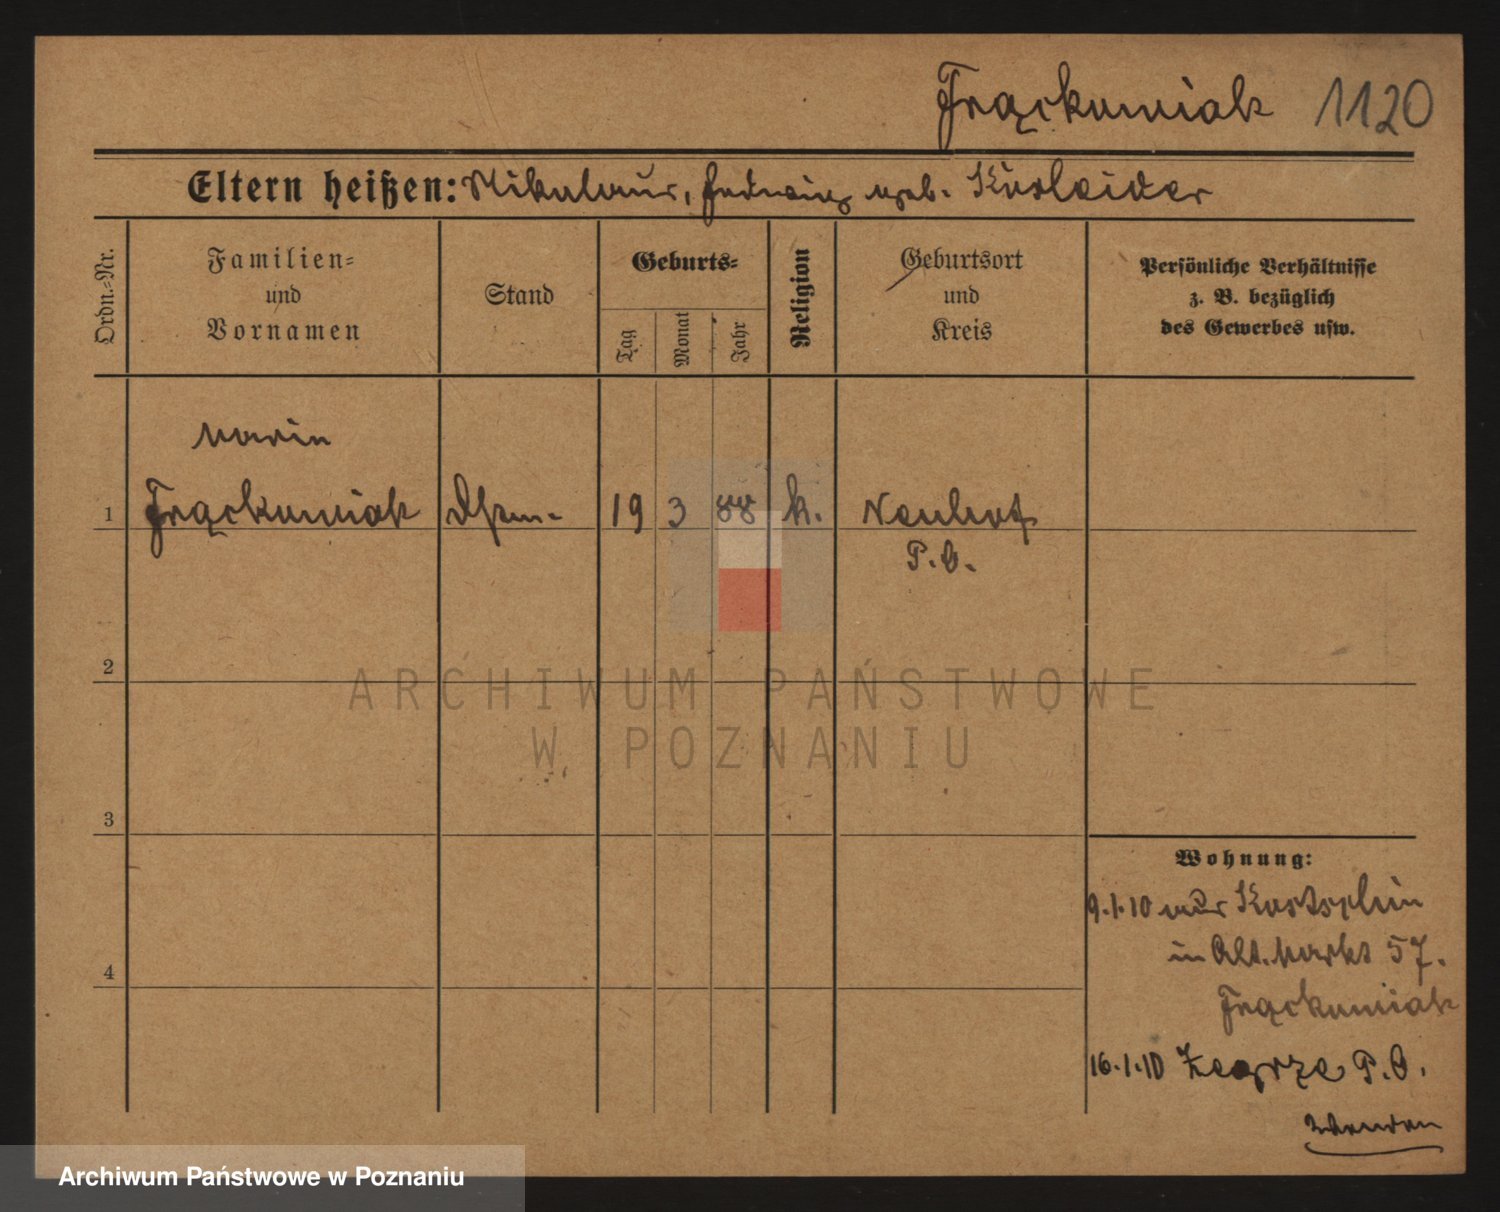 Frąckowiak 1120
Eltern heißen: Nikolaus, Hedwig geb. Kosleider
Ordn.-Nr.
Familien-
und
Vornamen
Stand
Geburts-
Tag
Monat
Jahr
Religion
Geburtsort
und
Kreis
Persönliche Verhältnisse
z. B. bezüglich
des Gewerbes usw.
Marie
1 Frąckowiak 19 3 88 k. Neuhof
P.O.
2
3
4
Wohnung:
9.1.10 aus Kostschin
in Alt. Markt 57.
Frąckowiak
16.1.10 Zegrze P.O.
Wenden
ARCHIWUM PAŃSTWOWE
W POZNANIU
Archiwum Państwowe w Poznaniu